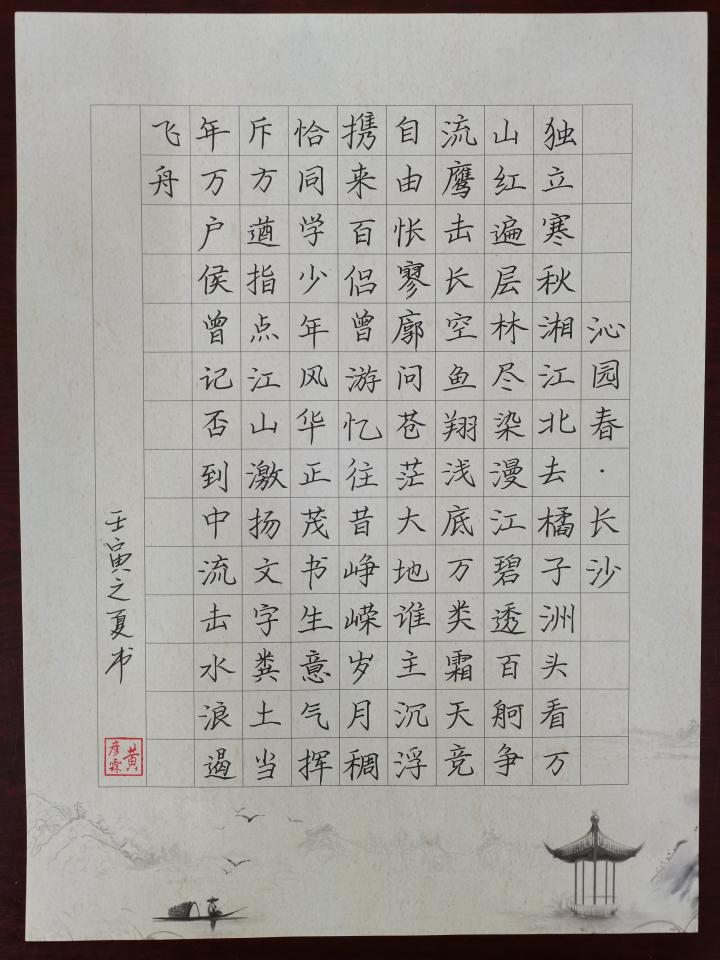 沁园春·长沙
独立寒秋湘江北去橘子洲头看万
山红遍层林尽染漫江碧透百舸争
流鹰击长空鱼翔浅底万类霜天竞
自由怅寥廓问苍茫大地谁主沉浮
携来百侣曾游忆往昔峥嵘岁月稠
恰同学少年风华正茂书生意气挥
斥方遒指点江山激扬文字粪土当
年万户侯曾记否到中流击水浪遏
飞舟
壬寅之夏书
黄彦霖